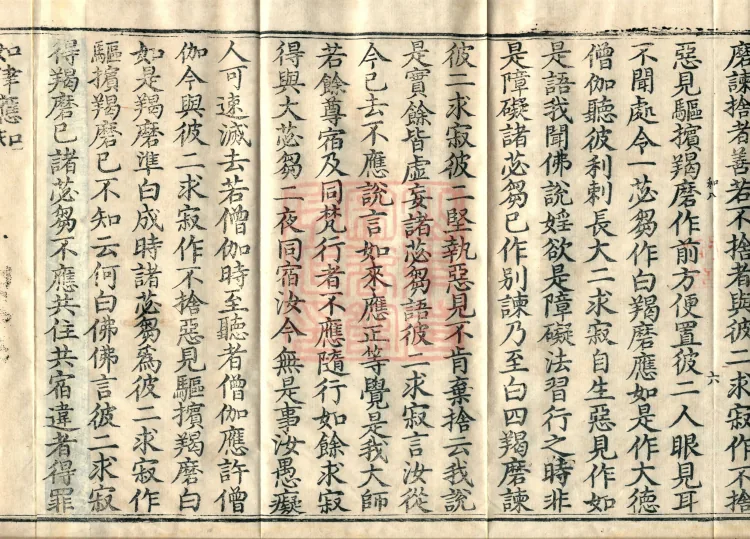 磨諫捨者善若不捨者與彼二求寂作不捨
和八
六
惡見驅擯羯磨作前方便置彼二人眼見耳
不聞處令一苾芻作白羯磨應如是作大德
僧伽聽彼利刺長大二求寂自生惡見作如
是語我聞佛說婬欲是障礙法習行之時非
是障礙諸苾芻已作別諫乃至白四羯磨諫
彼二求寂彼二堅執惡見不肯棄捨云我說
是實餘皆虛妄諸苾芻語彼二求寂言汝從
今已去不應說言如來應正等覺是我大師
若餘尊宿及同梵行者不應隨行如餘求寂
得與大苾芻二夜同宿汝今無是事汝愚癡
人可速滅去若僧伽時至聽者僧伽應許僧
伽今與彼二求寂作不捨惡見驅擯羯磨白
如是羯磨準白成時諸苾芻為彼二求寂作
驅擯羯磨已不知云何白佛佛言彼二求寂
得羯磨已諸苾芻不應共住共宿違者得罪
如律應知